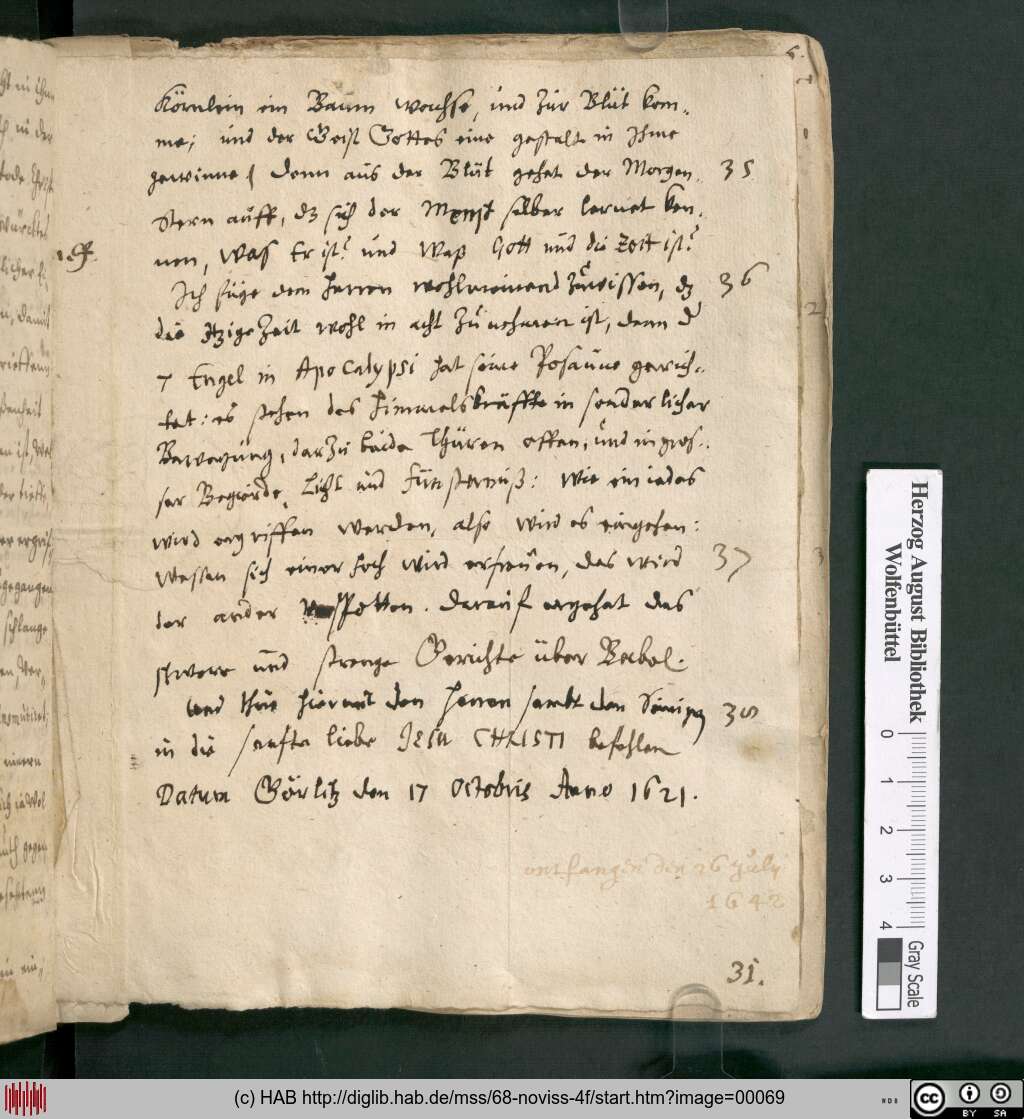 6.
Körnlein ein Baum wachse, und zur Blüt kom-
me; und der Geist Gottes eine gestalt in Ihme
gewinne / denn aus der Blüt gehet der Morgen- 35
Stern auff, dz sich der Mensch selber lernet ken-
nen, was Er ist? und Waß Gott und die Zeit ist?
Ich füge dem Herren wohlmeinend zuwissen, dz 36
die itzige Zeit wohl in acht zu nehmen ist, denn der
7 Engel in Apocalypsi hat seine Posaune gerich-
tet: es stehen des Himmels kräffte in sonderlicher
Bewegung, darzu beide Thüren offen, und in gros-
ser Begierde, Licht und Fünsternüß: wie ein iedes
wird ergriffen werden, also wird es eingehen:
Wessen sich einer hoch wird erfreuen, das wird 37
der ander verspotten. darauf ergehet das
schwere und strenge Gerichte über Babel.
Und thue hiermit den Herren sambt den Seinigen 38
in die sanfte liebe JESU CHRISTI befehlen
Datum Görlitz den 17 Octobris Anno 1621.
ontfangen den 26 July
1642
31.
Herzog August Bibliothek
Wolfenbüttel
0 1 2 3 4
Gray Scale
(c) HAB http://diglib.hab.de/mss/68-noviss-4f/start.htm?image=00069
cc BY SA